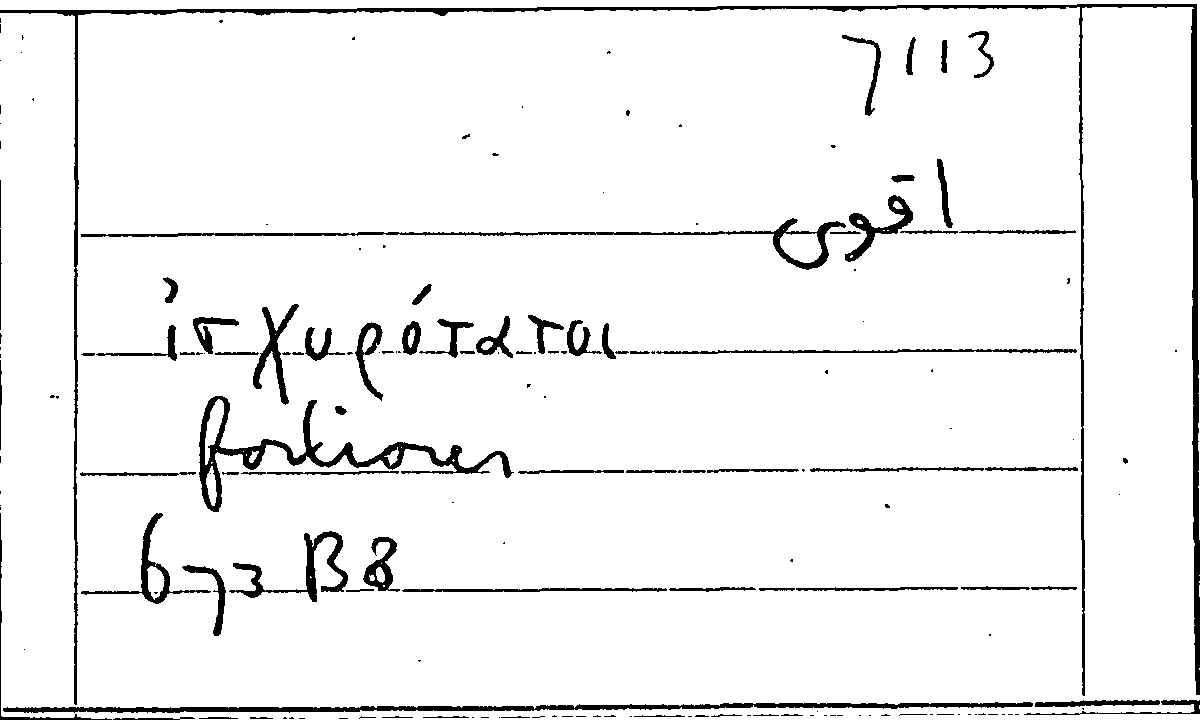 7113
اقوى
ἰσχυρότατοι
fortiores
673 B8